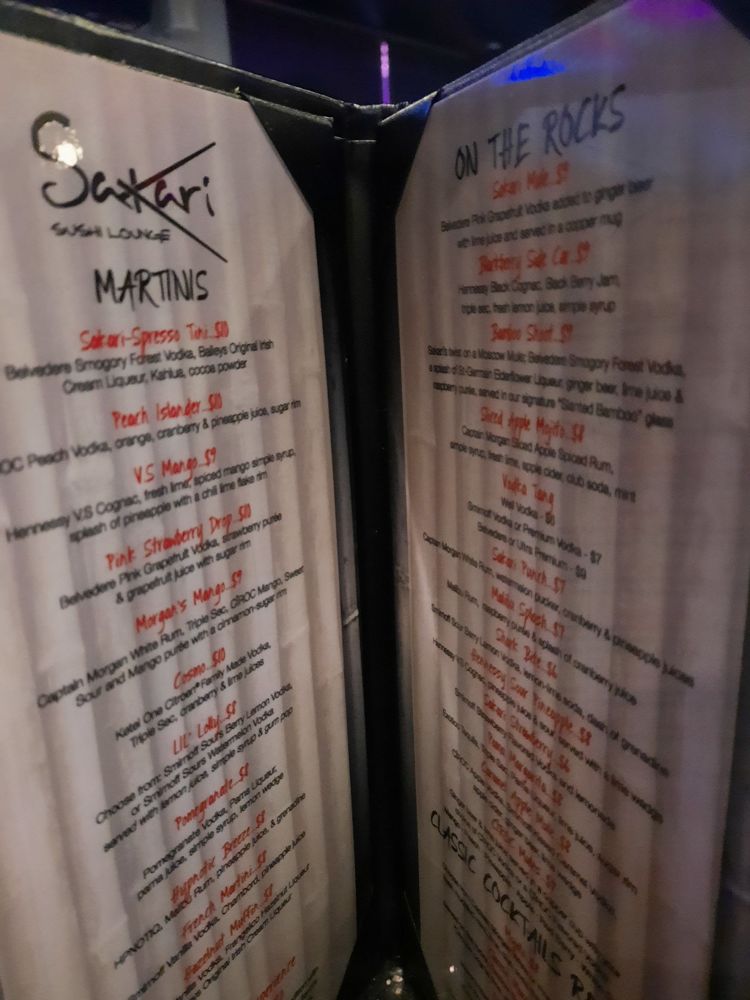 Sakari
SUSHI LOUNGE
MARTINIS
Sakari-Spresso Tini..$10
Belvedere Smogory Forest Vodka, Baileys Original Irish
Cream Liqueur, Kahlua, cocoa powder
Peach Islander..$10
OC Peach Vodka, orange, cranberry & pineapple juice, sugar rim
V.S Mango..$9
Hennessy V.S Cognac, fresh lime, spiced mango simple syrup,
splash of pineapple with a chili lime flake rim
Pink Strawberry Drop..$10
Belvedere Pink Grapefruit Vodka, strawberry purée
& grapefruit juice with sugar rim
Morgan's Mango..$9
Captain Morgan White Rum, Triple Sec, CÎROC Mango, Sweet
Sour and Mango purée with a cinnamon-sugar rim
Cosmo..$10
Ketel One Citroen Family Made Vodka,
Triple Sec, cranberry & lime juices
LIL' Lolly..$8
Choose from: Smirnoff Sours Berry Lemon Vodka,
or Smirnoff Sours Watermelon Vodka
served with lemon juice, simple syrup & gum pop
Pomegranate..$8
Pomegranate Vodka, Pama Liqueur,
pama juice, simple syrup, lemon wedge
Hypnotic Breeze..$8
HPNOTIQ, Malibu Rum, pineapple juice, & grenadine
French Martini..$8
Smirnoff Vanilla Vodka, Chambord, pineapple juice
Hazelnut Muffin..$8
Vodka, Frangelico Hazelnut Liqueur
Original Irish Cream Liqueur
ON THE ROCKS
Sakari Mule..$9
Belvedere Pink Grapefruit Vodka added to ginger beer
with lime juice and served in a copper mug
Blackberry Side Car..$9
Hennessy Black Cognac, Black Berry Jam,
triple sec, fresh lemon juice, simple syrup
Bamboo Shoot..$9
Sakari's twist on a Moscow Mule; Belvedere Smogory Forest Vodka,
a splash of St-Germain Elderflower Liqueur, ginger beer, lime juice &
raspberry purée, served in our signature "Slanted Bamboo" glass
Sliced Apple Mojito..$8
Captain Morgan Sliced Apple Spiced Rum,
simple syrup, fresh lime, apple cider, club soda, mint
Vodka Tang
Well Vodka - $6
Smirnoff Vodka or Premium Vodka - $7
Belvedere or Ultra Premium - $9
Sakari Punch..$7
Captain Morgan White Rum, watermelon pucker, cranberry & pineapple juices
Malibu Splash..$7
Malibu Rum, raspberry purée & splash of cranberry juice
Shark Bite..$6
Smirnoff Sour Berry Lemon Vodka, lemon lime soda, dash of grenadine
Hennessy Sour Pineapple..$8
Hennessy VS Cognac, pineapple juice & sour served with a lime wedge
Sakari Strawberry..$6
Smirnoff Strawberry and lemonade
Margarita..$8
lime juice, sugar rim
Caramel Apple Mule..$8
CLASSIC COCKTAILS